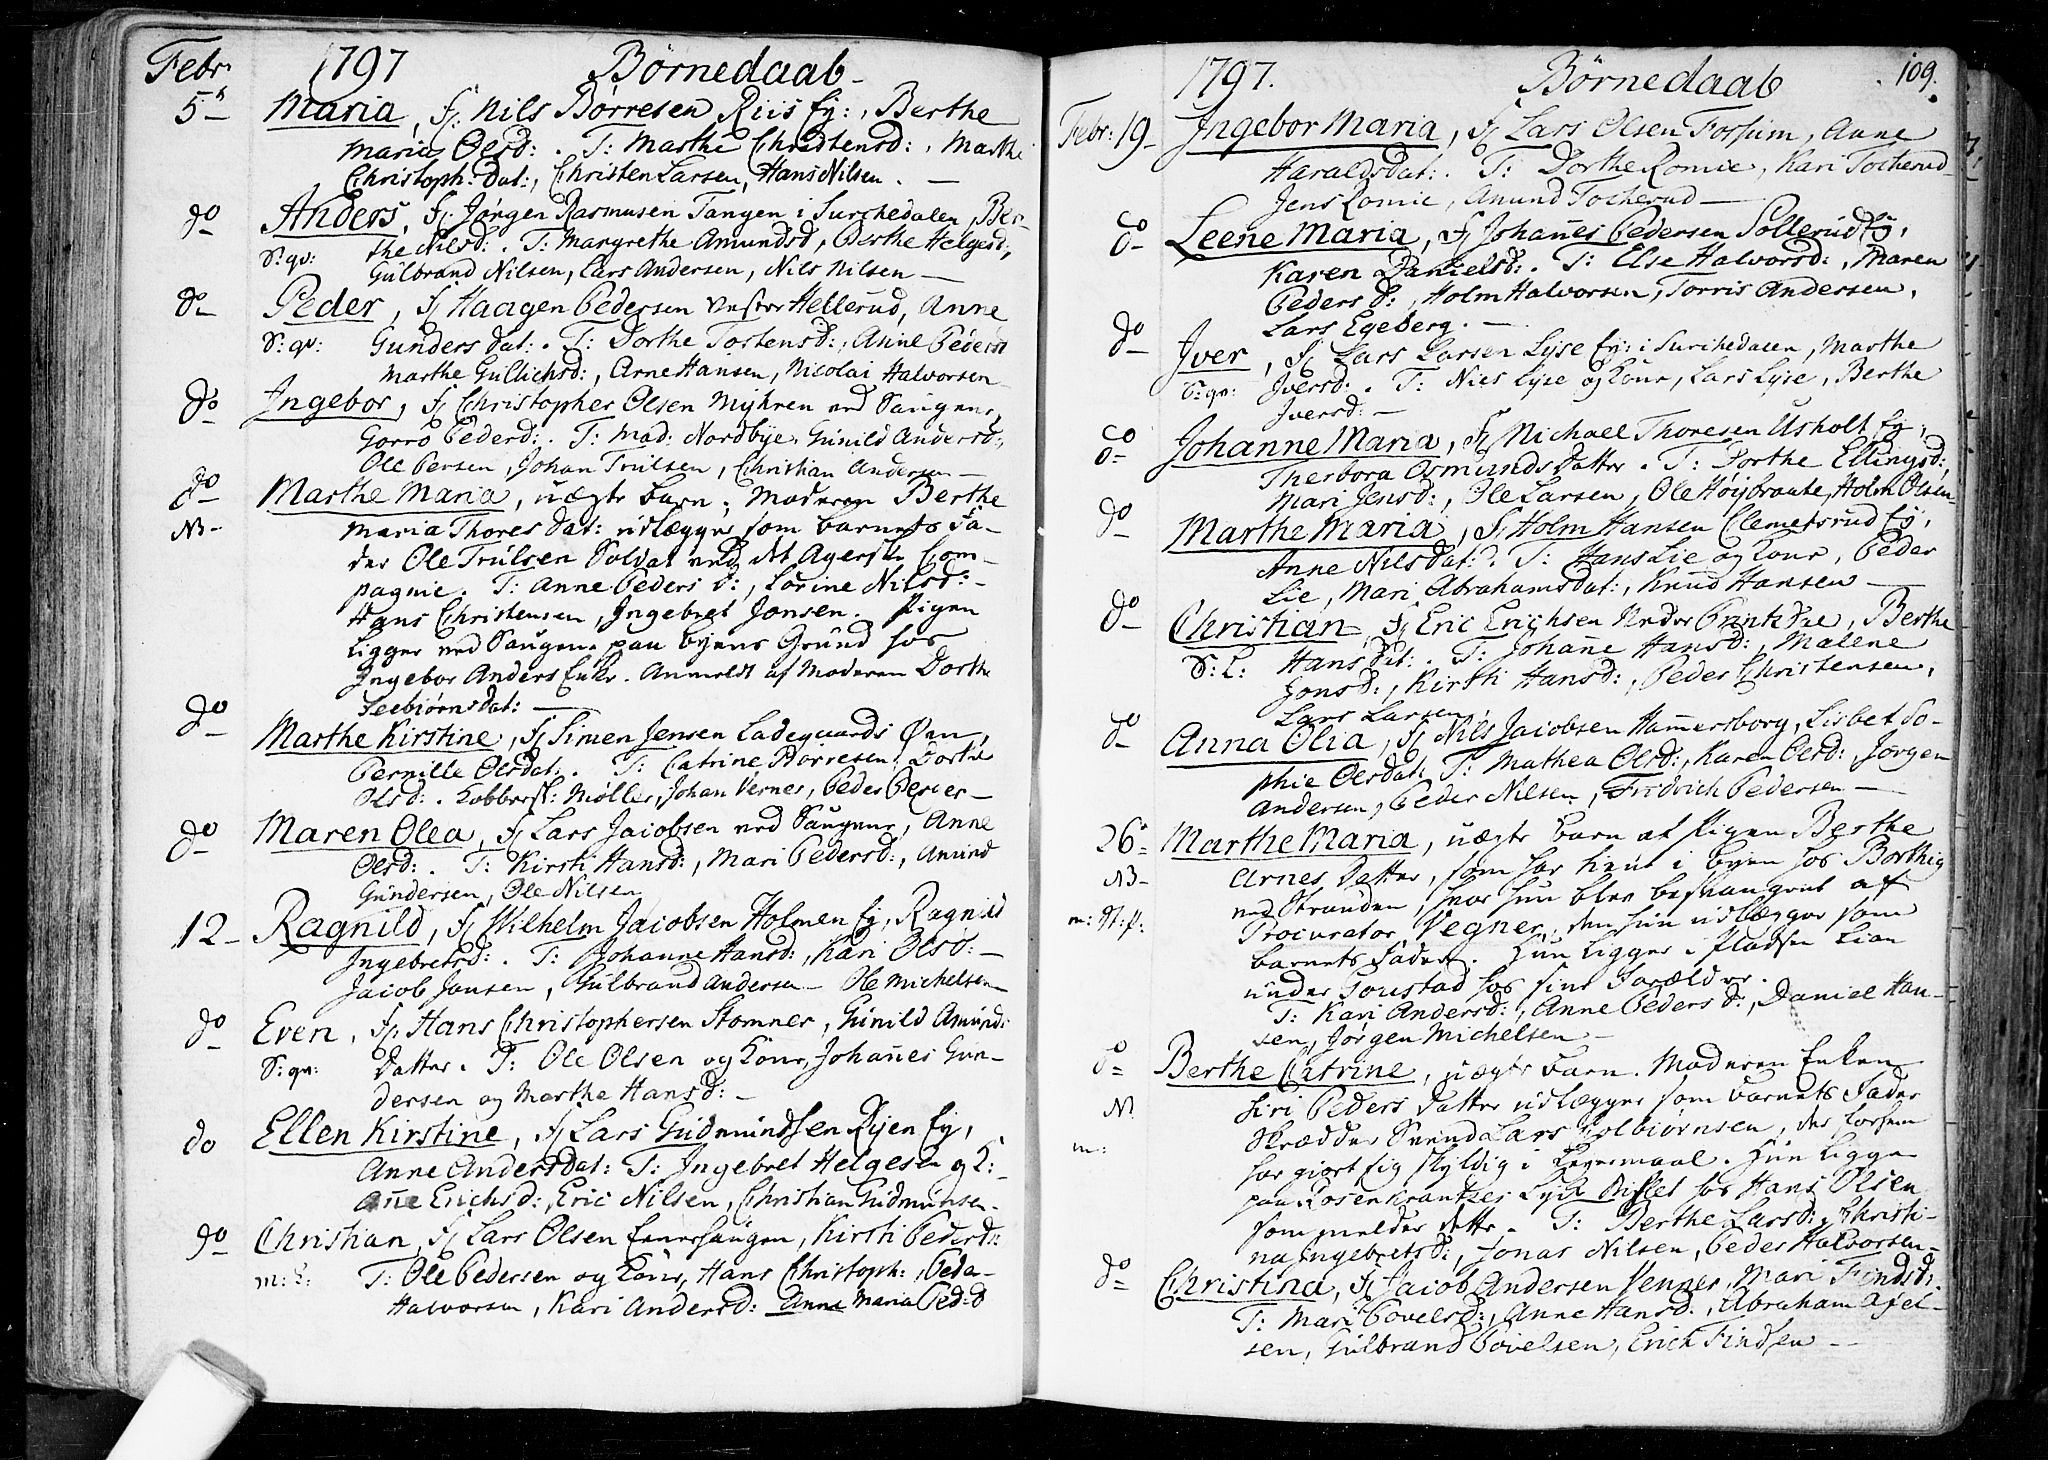 Febr. 1797 Børnedaab
5te Maria, f: Nils Børresen Riis Ey:, Berthe
Maria Olsd: . T: Marthe Christensd: , Marthe
Christoph: Dat:, Christen Larsen, Hans Nilsen . —
do Anders, f: Jørgen Rasmusen Tangen i Surchedalen, Ber-
S: qv: the Nilsd: . T: Margrethe Amundsd, Berthe Helgesd:,
Gulbrand Nilsen, Lars Andersen, Nils Nilsen —
do Peder, f: Haagen Pedersen Hellerud, Anne
S: qv: Gunders Dat: . T: Dorthe Tostensd:, Anne Pedersd
Marthe Gullichsd:, Arne Hansen, Nicolai Halvorsen
do Ingebor, f: Christopher Olsen Myhren ved Saugene,
Gorro Pedersd: . T: Mad: Nordbye, Gunild Andersd:,
Ole Persen, Johan Trulsen, Christian Andersen —
do Marthe Maria, uægte barn; Moderen Berthe
NB- Maria Thores Dat: udlægger som barnets Fa-
der Ole Trulsen Soldat ved det Agersche Com-
pagnie. T: Anne Peders D:, Lorine Nilsd: -
Hans Christensen, Ingebret Jonsen. Pigen
ligger ved Saugene paa byens Grund hos
Ingebor Anders Enke. Anmeldt af Moderen Dorthe
Seebiørnsdat: —
do Marthe Kirstine, f: Simen Jensen Ladegaards Øen,
Pernille Olsdat: . T: Catrine Børresen, Dorthe
Olsd: . Kobbersl: Møller, Johan Verner, Peder Persen —
do Maren Olea, f: Lars Jacobsen ved Saugene, Anne
Olsd: . T: Kirsti Hansd:, Mari Pedersd:, Amund
Gundersen, Ole Nilsen
12 - Ragnild, f: Wilhelm Jacobsen Holmen Ey, Ragnild
Ingebretsd: . T: Johanne Hansd:, Kari Olsd: —
Jacob Jansen, Gulbrand Andersen — Ole Michelsen
do Even, f: Hans Christophersen Stomner, Gunild Amunds
S: qv: Datter. T: Ole Olsen og Kone, Johanes Gun-
dersen og Marthe Hansd: —
do Ellen Kirstine, f: Lars Gudmundsen Ryen Ey,
Anne Andersdat: T: Ingebret Helgesen og K:
Anne Erichsd:, Eric Nilsen, Christian Gudmunsen.
do Christian, f: Lars Olsen Enersaugen, Kirsti Pedersd:
m: L: T: Ole Pedersen og Kone, Hans Christoph: , Peder
Halvorsen, Kari Andersd: Anne Maria Ped:D
1797. Børnedaab 109.
Febr: 19 - Ingebor Maria, f: Lars Olsen Fossum, Anne
Haraldsdat: . T: Dorthe Romie, Kari Tocherud
Jens Romie, Amund Tocherud —
do Leene Maria, f: Johanes Pedersen Sollerud Ey,
Karen Danielsd: . T: Else Halvorsd: , Maren
Peders D: , Holm Halvorsen, Torris Andersen,
Lars Egeberg. —
do Iver, f: Lars Larsen Lyse Ey: i Surchedalen, Marthe
S: qv: Iversd: . T: Niels Lyse og Kone, Lars Lyse, Berthe
Iversd: —
do Johanne Maria, f: Michael Thoresen Usholt Ey,
Therbora Osmunds Datter. T: Dorthe Ellingsd:,
Mari Jensd:, Ole Larsen, Ole Høybraate, Holm Olsen
do Marthe Maria, f: Holm Hansen Clemetsrud Ey,
Anne Nilsdat: . T: Hans Lie og Kone, Peder
Lie, Mari Abrahamsdat:, Knud Hansen —
do Christian, f: Eric Erichsen Under Frintz , Berthe
S: L: Hans Dat: . T: Johane Hansd:, Malene
Jonsd:, Kirsti Hansd:, Peder Christensen,
Lars Larsen,
do Anna Olia, f: Nils Jacobsen Hamersborg, Lisbet So-
phie Olsdat: T: Mathea Olsd:, Karen Olsd:, Jørgen
Andersen, Peder Nilsen, Fridrich Pedersen —
26 - Marthe Maria, uægte barn af Pigen Berthe
NB- Arnes Datter, som har tient i byen hos Borthig
m: St: p: ved Stranden, hvor hun blev besvangret af
Procurator Vegner, den hun udlægger som
barnets Fader. Hun ligger i Pladsen Lian
under Goustad hos sine Forældre.
T: Kari Andersd:, Anne Peders D:, Daniel Han-
sen, Jørgen Michelsen —
do Berthe Catrine, uægte barn. Moderen Enken
NB Siri Peders Datter udlægger som barnets Fader
m: Skrædder Svend Lars Kolbiørnsen, der forhen
har giort sig skyldig i Leiermaal. Hun ligger
paa Rosenkrantzes Lyk Bislet hos Hans Olsen
som melder dette. T: Berthe Larsd:, Christi-
na Ingebretsd:, Jonas Nilsen, Peder Halvorsen —
do Christina, f: Jacob Andersen Venner, Mari Findsd:
T: Mari Povelsd:, Anne Hansd:, Abraham Axel-
sen, Gulbrand Povelsen, Erich Findsen —